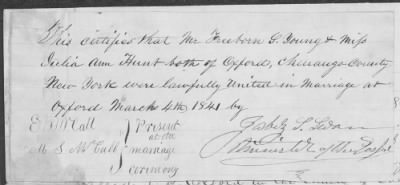 This certifies that Mr Freeborn G. Young & Miss
Julia Ann Hunt both of Oxford, Chenango County
New York were lawfully United in Marriage at
Oxford March 4th 1841 by
E. McCall
M S McCall
Present
at the
marriage
ceremony
Jabez S.
Minister of the Gospel